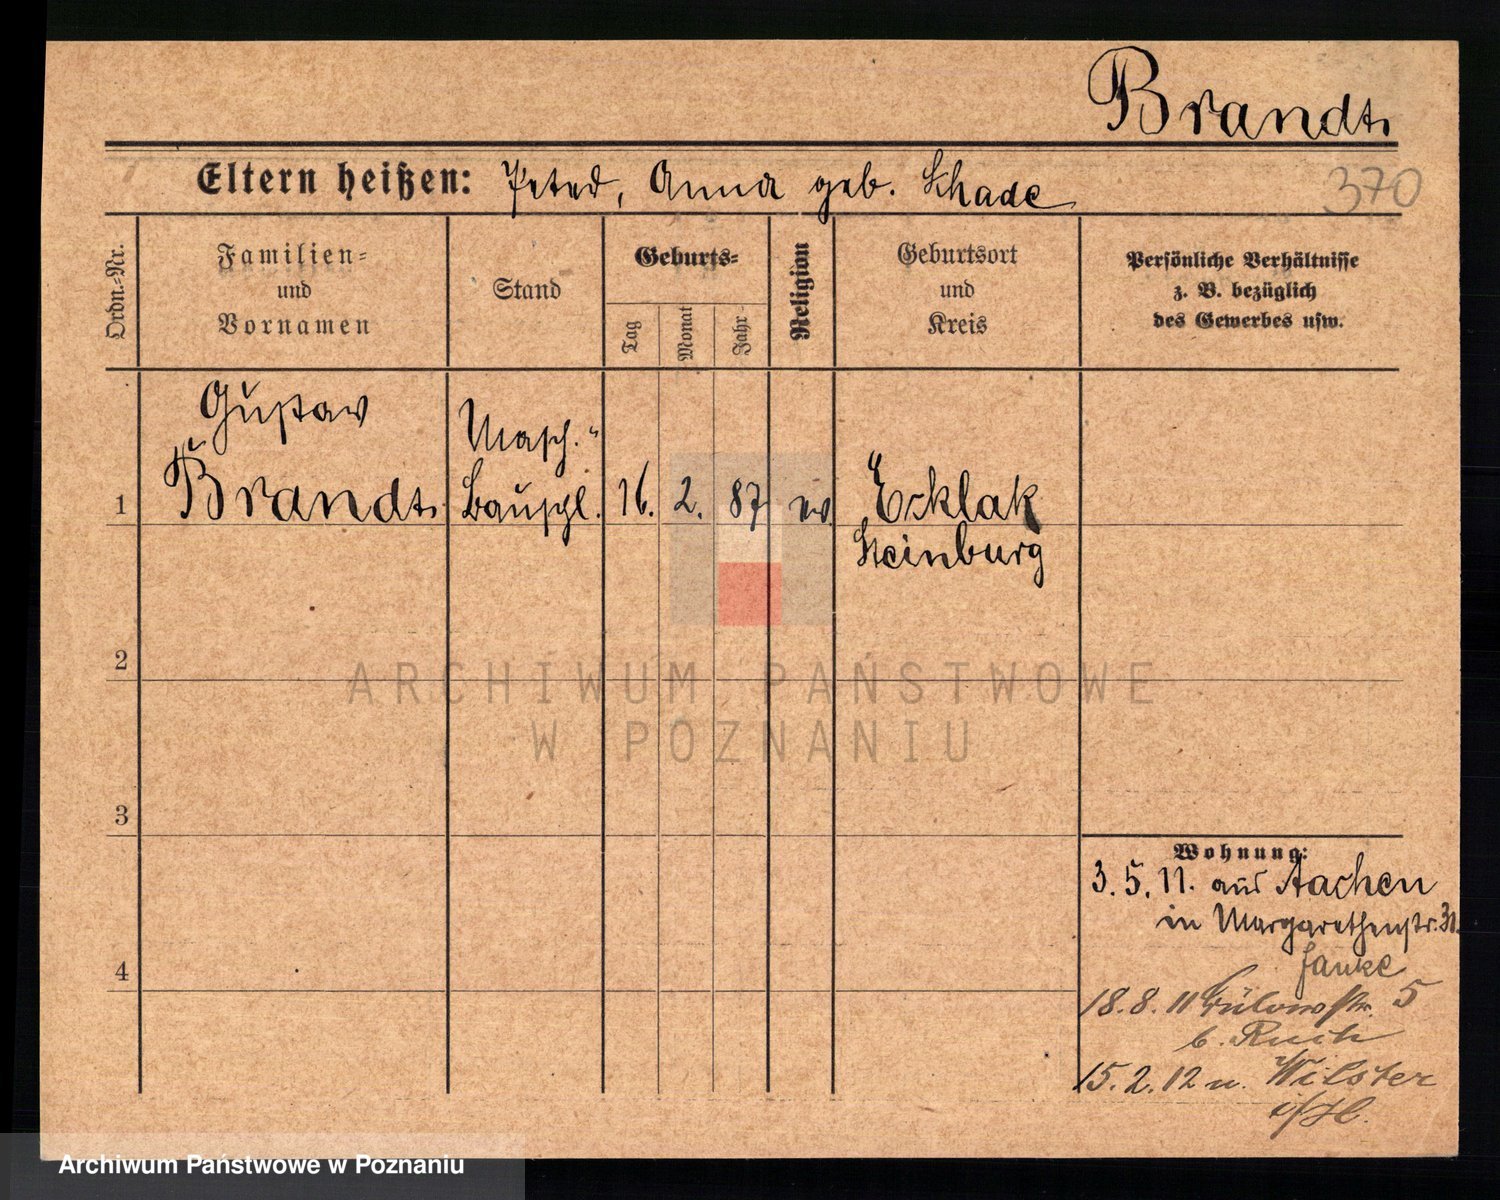 Brandt.
Eltern heißen: Peter, Anna geb. Schade
370
Ordn.-Nr.
Familien-
und
Vornamen
Stand
Geburts-
Tag
Monat
Jahr
Religion
Geburtsort
und
Kreis
Persönliche Verhältnisse
z. B. bezüglich
des Gewerbes usw.
Gustav
Masch.-
1 Brandt. Bauschl. 16. 2. 87 ev. Ecklak
Steinburg
2
3
4
Wohnung:
3.5.11. aus Aachen
in Margarethenstr.
Janke
18.8.11 Bülowstr. 5
b.
15.2.12 n. Wilster
i/H.
ARCHIWUM PAŃSTWOWE
W POZNANIU
Archiwum Państwowe w Poznaniu